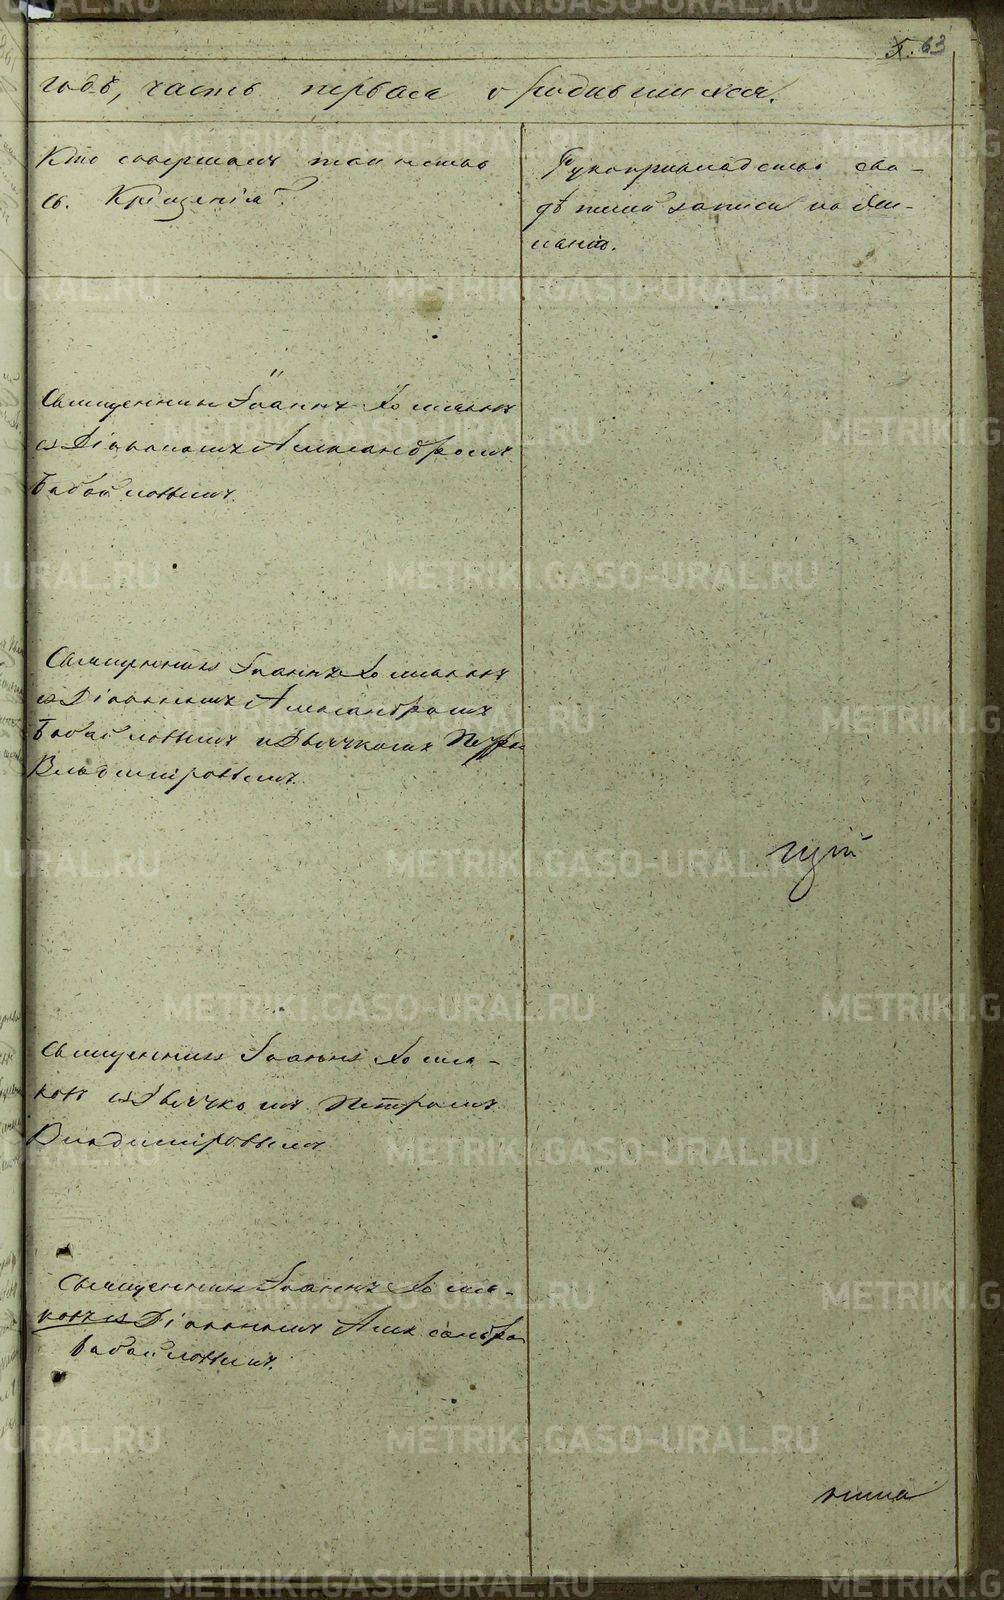 5. 63
годъ, часть первая о родившихся.
Кто совершалъ таинство
св. Крещенія?
Рукоприкладство сви-
дѣтелей записи по же-
ланію.
Священникъ Іоаннъ Хомяковъ
съ Діакономъ Александромъ
Бабайловымъ.
Священникъ Іоаннъ Хомяковъ
съ Діакономъ Александромъ
Бабайловымъ и Дьячкомъ Петро
Владиміровымъ.
Священникъ Іоаннъ Хомя-
ковъ съ Дьячкомъ Петромъ
Владиміровымъ
Священникъ Іоаннъ Хомя-
ковъ съ Діакономъ Александро
Бабайловымъ.
METRIKI.GASO-URAL.RU